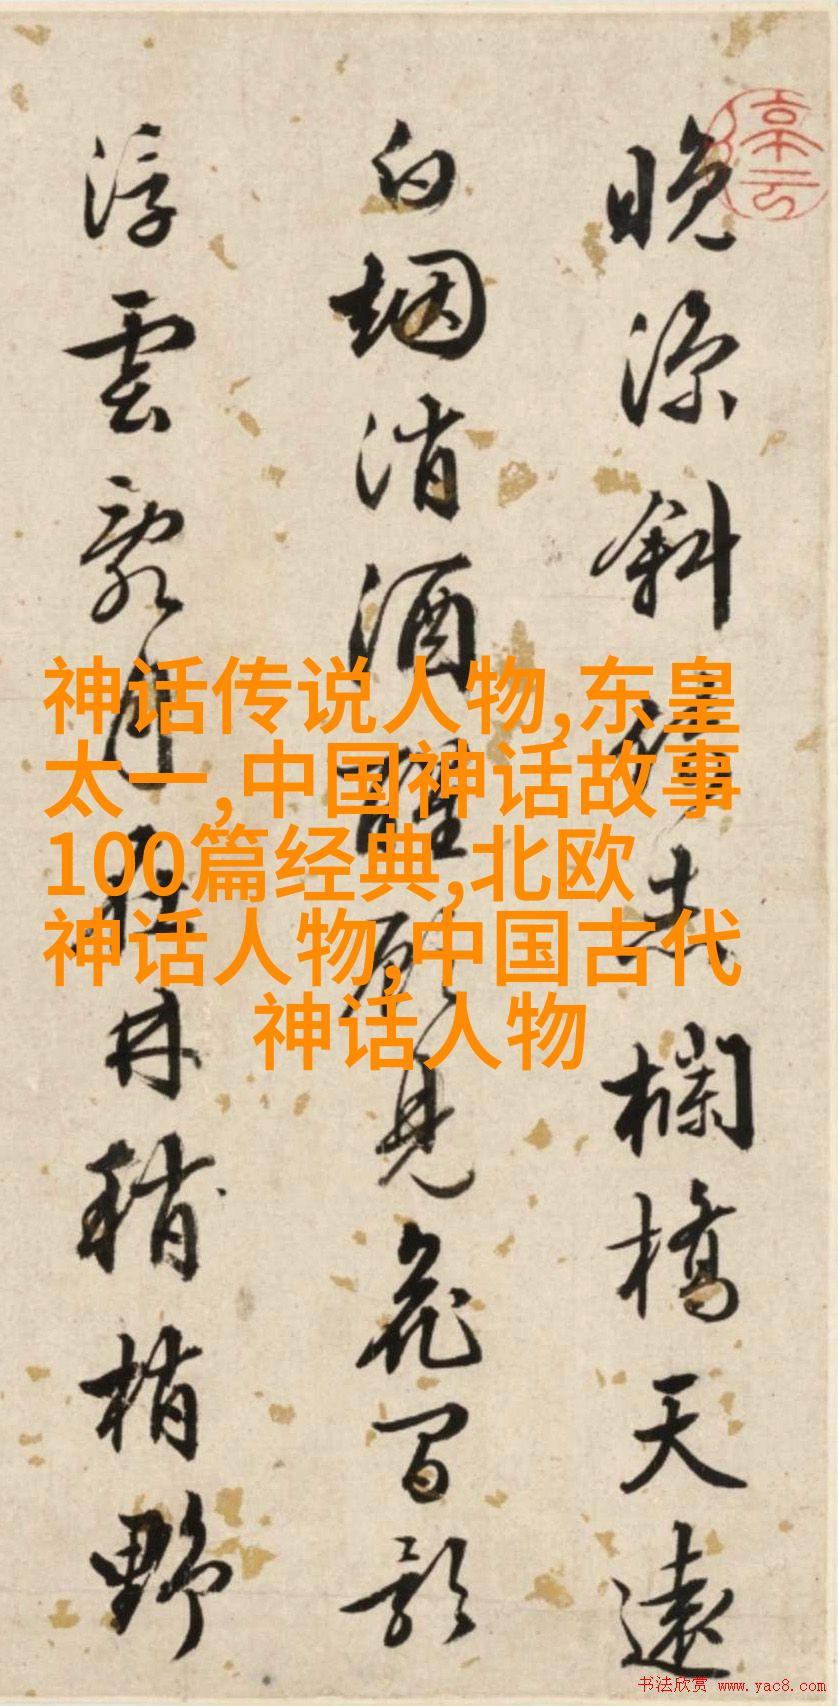 晚涼斜赤欄橋天遠
白烟消酒醒見花間影
浮雲月在林稍梢野
神话传说人物,东皇
太一,中国神话故事
100篇经典,北欧
神话人物,中国古代
神话人物
书法欣赏 www.yac8.com